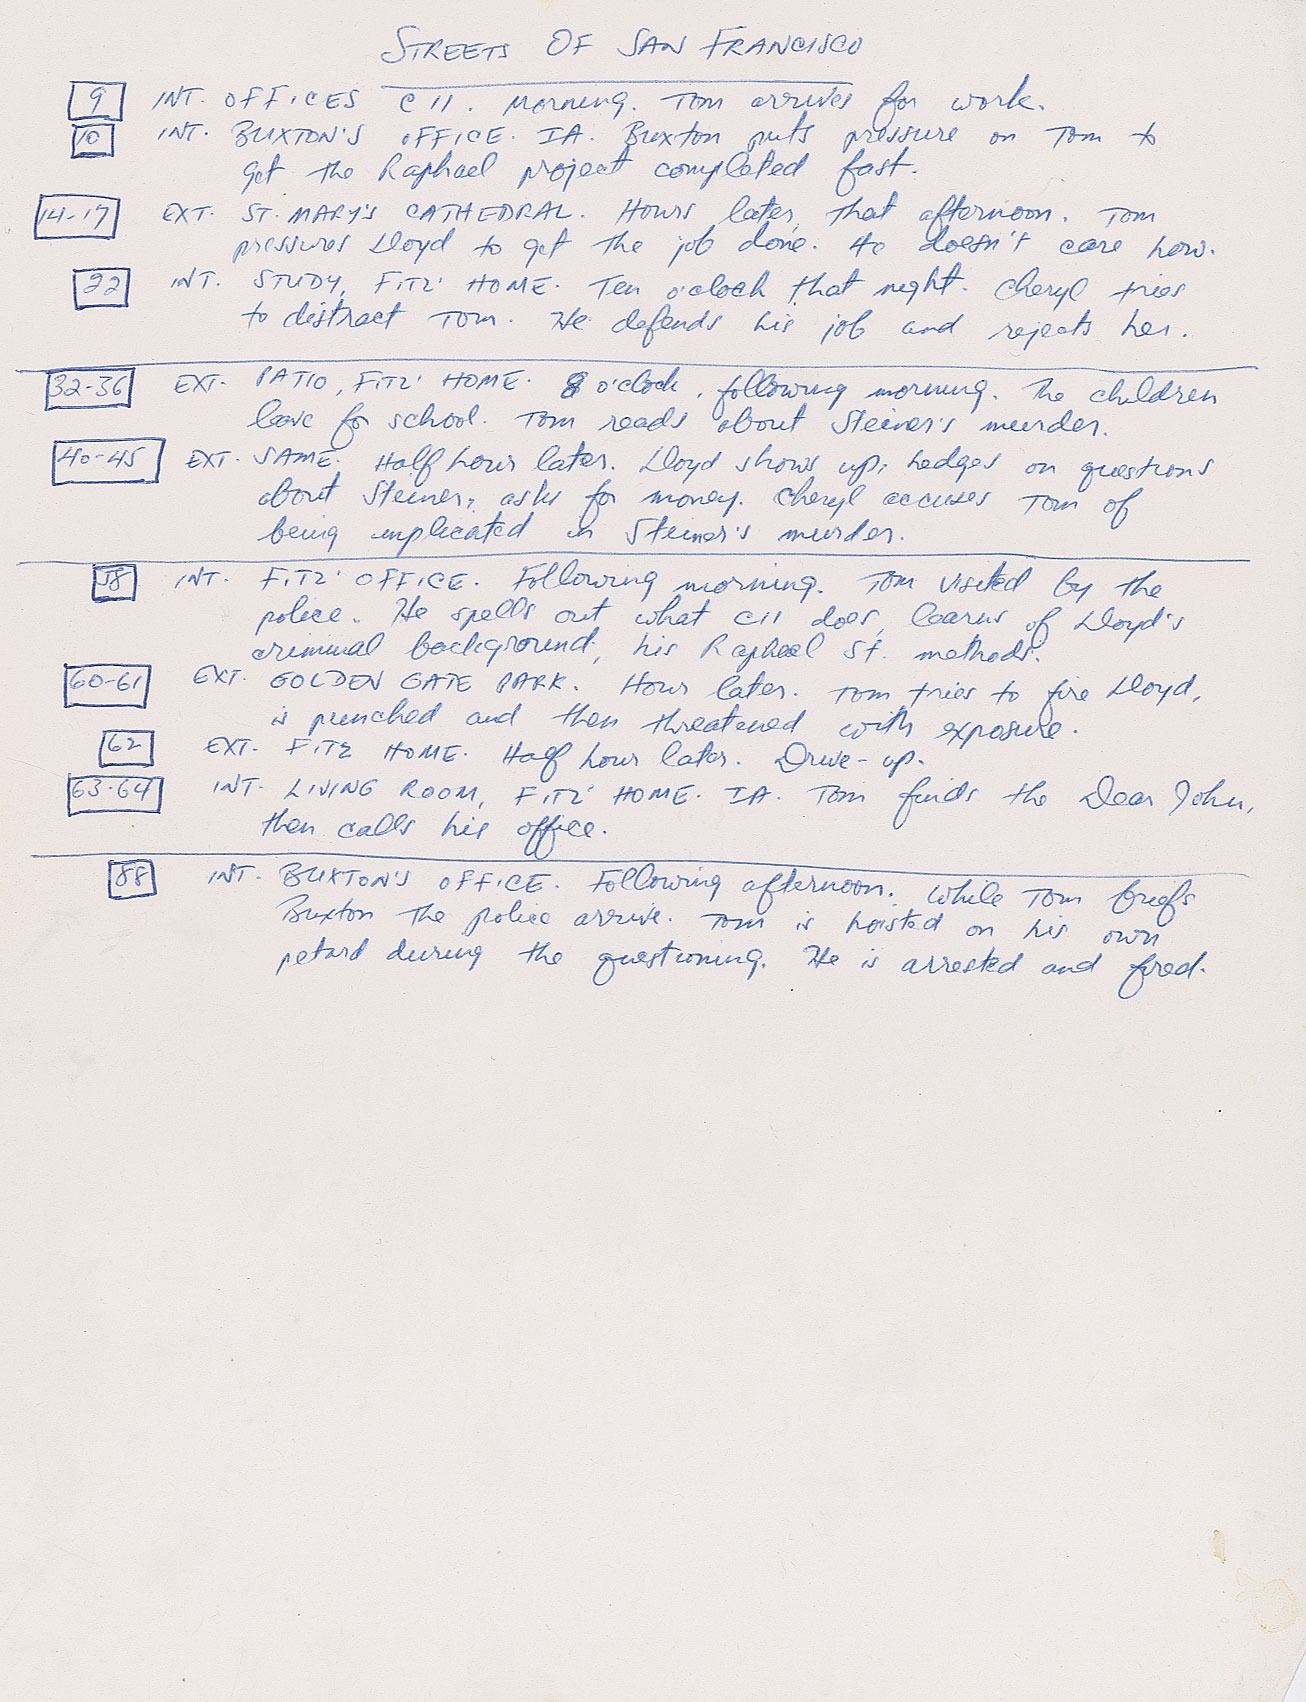 STREETS OF SAN FRANCISCO
9 INT. OFFICES CII. Morning. Tom arrives for work.
10 INT. BUXTON'S OFFICE. IA. Buxton puts pressure on Tom to
get the Raphael project completed fast.
14-17 EXT. ST. MARY'S CATHEDRAL. Hours later, that afternoon. Tom
pressures Lloyd to get the job done. He doesn't care how.
22 INT. STUDY, FITZ' HOME. Ten o'clock that night. Cheryl tries
to distract Tom. He defends his job and rejects her.
32-36 EXT. PATIO, FITZ' HOME. 8 o'clock, following morning. The children
leave for school. Tom reads about Steiner's murder.
40-45 EXT. SAME. Half hour later. Lloyd shows up; hedges on questions
about Steiner; asks for money. Cheryl accuses Tom of
being implicated in Steiner's murder.
58 INT. FITZ' OFFICE. Following morning. Tom visited by the
police. He spells out what CII does, learns of Lloyd's
criminal background, his Raphael St. methods.
60-61 EXT. GOLDEN GATE PARK. Hour later. Tom tries to fire Lloyd,
is punched and then threatened with exposure.
62 EXT. FITZ HOME. Half hour later. Drive-up.
63-64 INT. LIVING ROOM, FITZ' HOME. IA. Tom finds the Dear John,
then calls his office.
88 INT. BUXTON'S OFFICE. Following afternoon. While Tom briefs
Buxton the police arrive. Tom is hoisted on his own
petard during the questioning. He is arrested and fired.